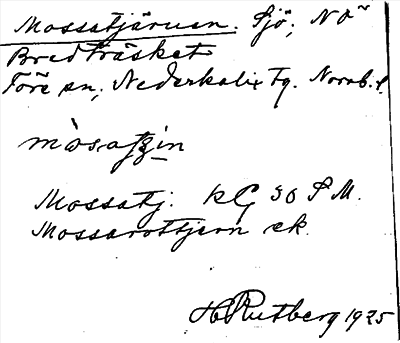 Mossatjärnen. Sjö; NO
Bredträsket
Töre sn; Nederkalix Tg. Norrb. l.
Mossatj. KG 30 S M.
Mossarottjern ek.
H Rutberg 1925